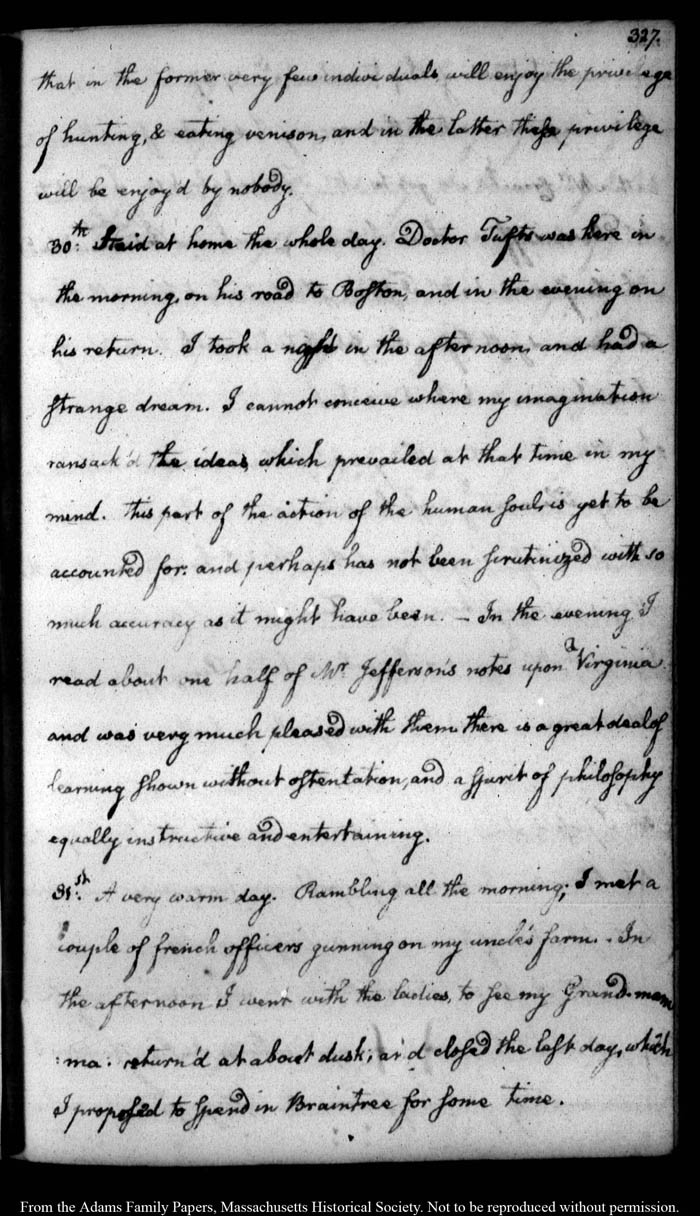 327.
that in the former very few individuals will enjoy the privilege
of hunting, & eating venison, and in the latter these privilege
will be enjoy'd by nobody.
30th: Staid at home the whole day. Doctor Tufts was here in
the morning, on his road to Boston, and in the evening on
his return. I took a in the afternoon, and had a
strange dream. I cannot conceive where my imagination
ransack'd the ideas, which prevailed at that time in my
mind. This part of the action of the human soul, is yet to be
accounted for: and perhaps has not been scrutinized with so
much accuracy as it might have been. — In the evening I
read about one half of Mr. Jefferson's notes upon Virginia
and was very much pleased with them. there is a great deal of
learning shown without ostentation, and a spirit of philosophy
equally instructive and entertaining.
31st: A very warm day. Rambling all the morning; I met a
couple of french officers gunning on my uncle's farm. In
the afternoon I went with the ladies, to see my Grand-mam
:ma: return'd at about dusk; and closed the last day, which
I proposed to spend in Braintree for some time.
From the Adams Family Papers, Massachusetts Historical Society. Not to be reproduced without permission.